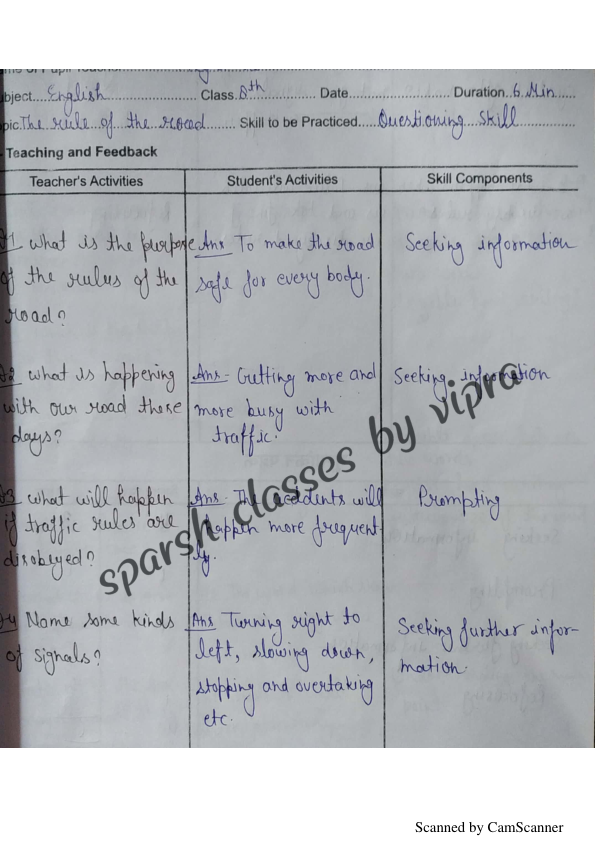 me of Pupil Teacher
bject....English.... Class.8th.... Date.... Duration..6 Min....
pic.The rule of the road.... Skill to be Practiced....Questioning skill....
Teaching and Feedback
Teacher's Activities Student's Activities Skill Components
Q1 What is the purpose
of the rules of the
road?
Ans To make the road
safe for every body.
Seeking information
Q2 What is happening
with our road these
days?
Ans- Getting more and
more busy with
traffic.
Seeking information
Q3 What will happen
if traffic rules are
disobeyed?
Ans- The accidents will
happen more frequent-
ly.
Prompting
Q4 Name some kinds
of signals?
Ans Turning right to
left, slowing down,
stopping and overtaking
etc.
Seeking further infor-
mation.
sparsh classes by vipra
Scanned by CamScanner